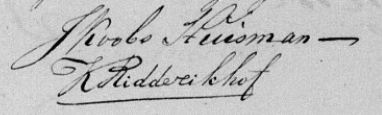 JKoobs Huisman
K Ridderikhof